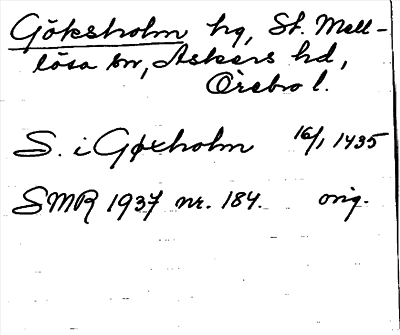 Göksholm hg, St. Mell-
lösa sn, Askers hd,
Örebro l.
S. i Gøxholm 16/1 1435
SMR 1937 nr. 184. orig.